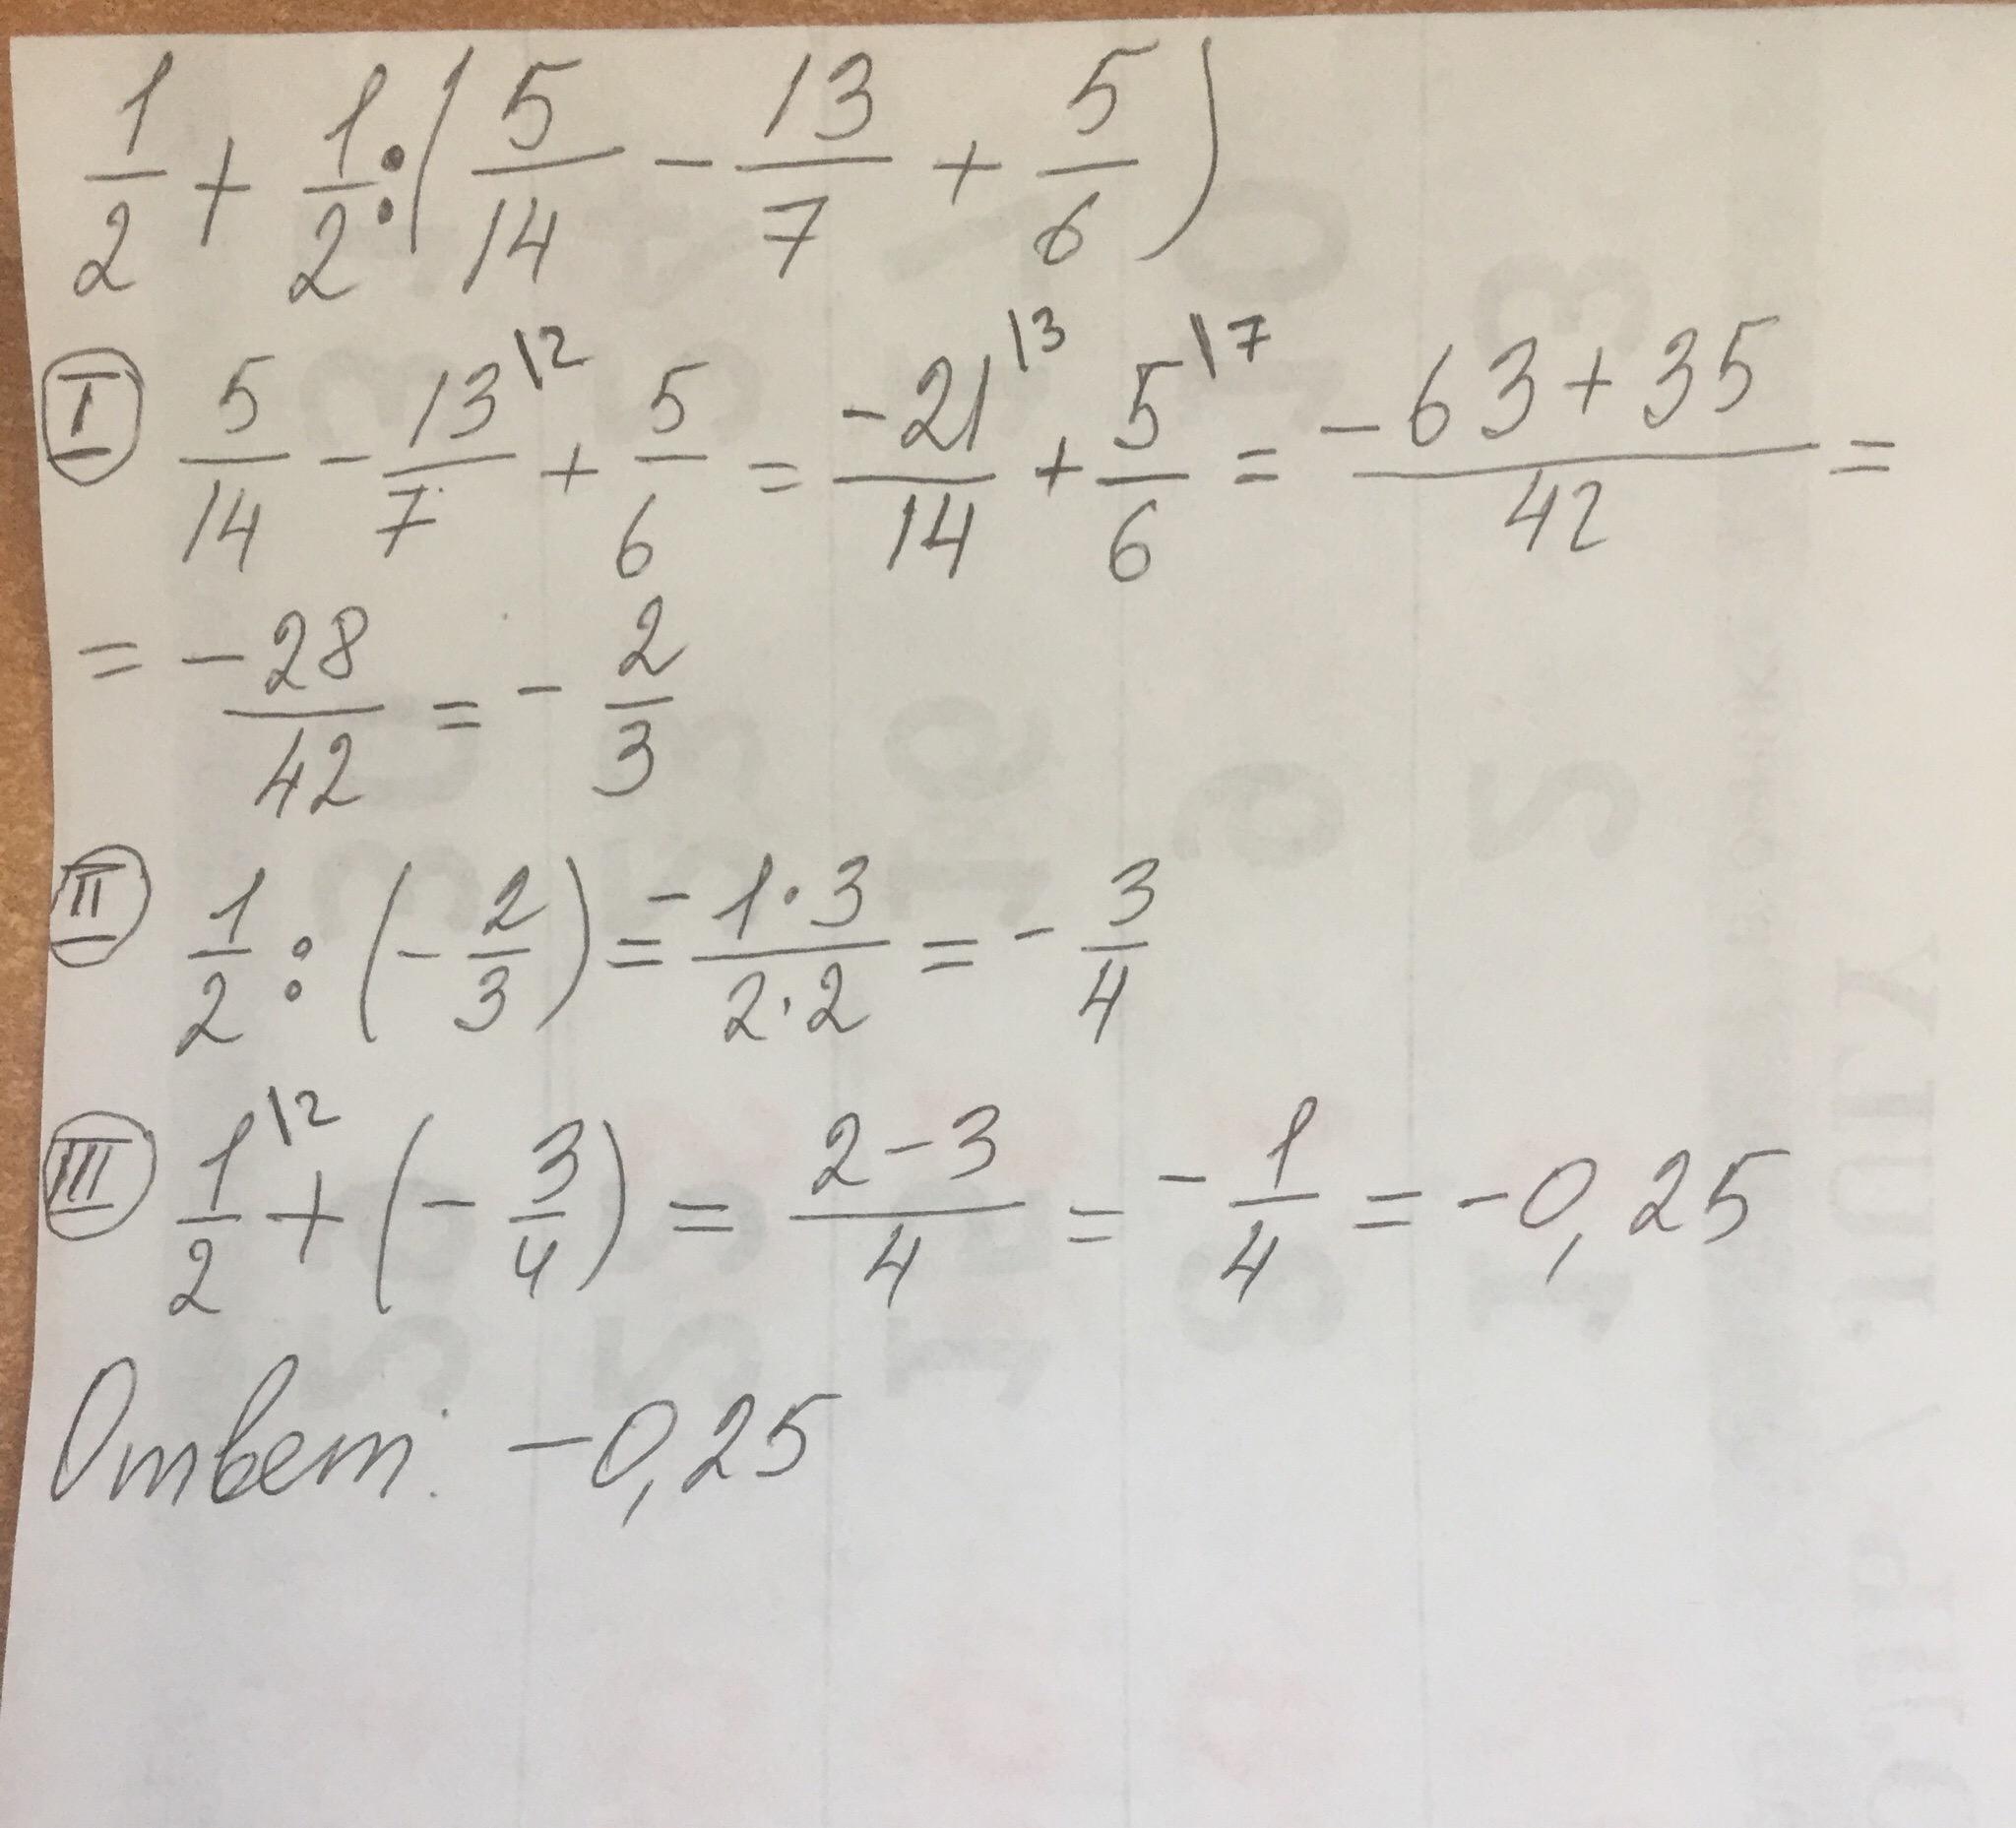 1/2 + 1/2 : (5/14 - 13/7 + 5/6)
I 5/14 - 13\2/7 + 5/6 = -21\3/14 + 5\7/6 = -63+35/42 =
= -28/42 = - 2/3
II 1/2 : (- 2/3) = -1·3/2·2 = - 3/4
III 1\2/2 + (- 3/4) = 2-3/4 = - 1/4 = -0,25
Ответ: -0,25